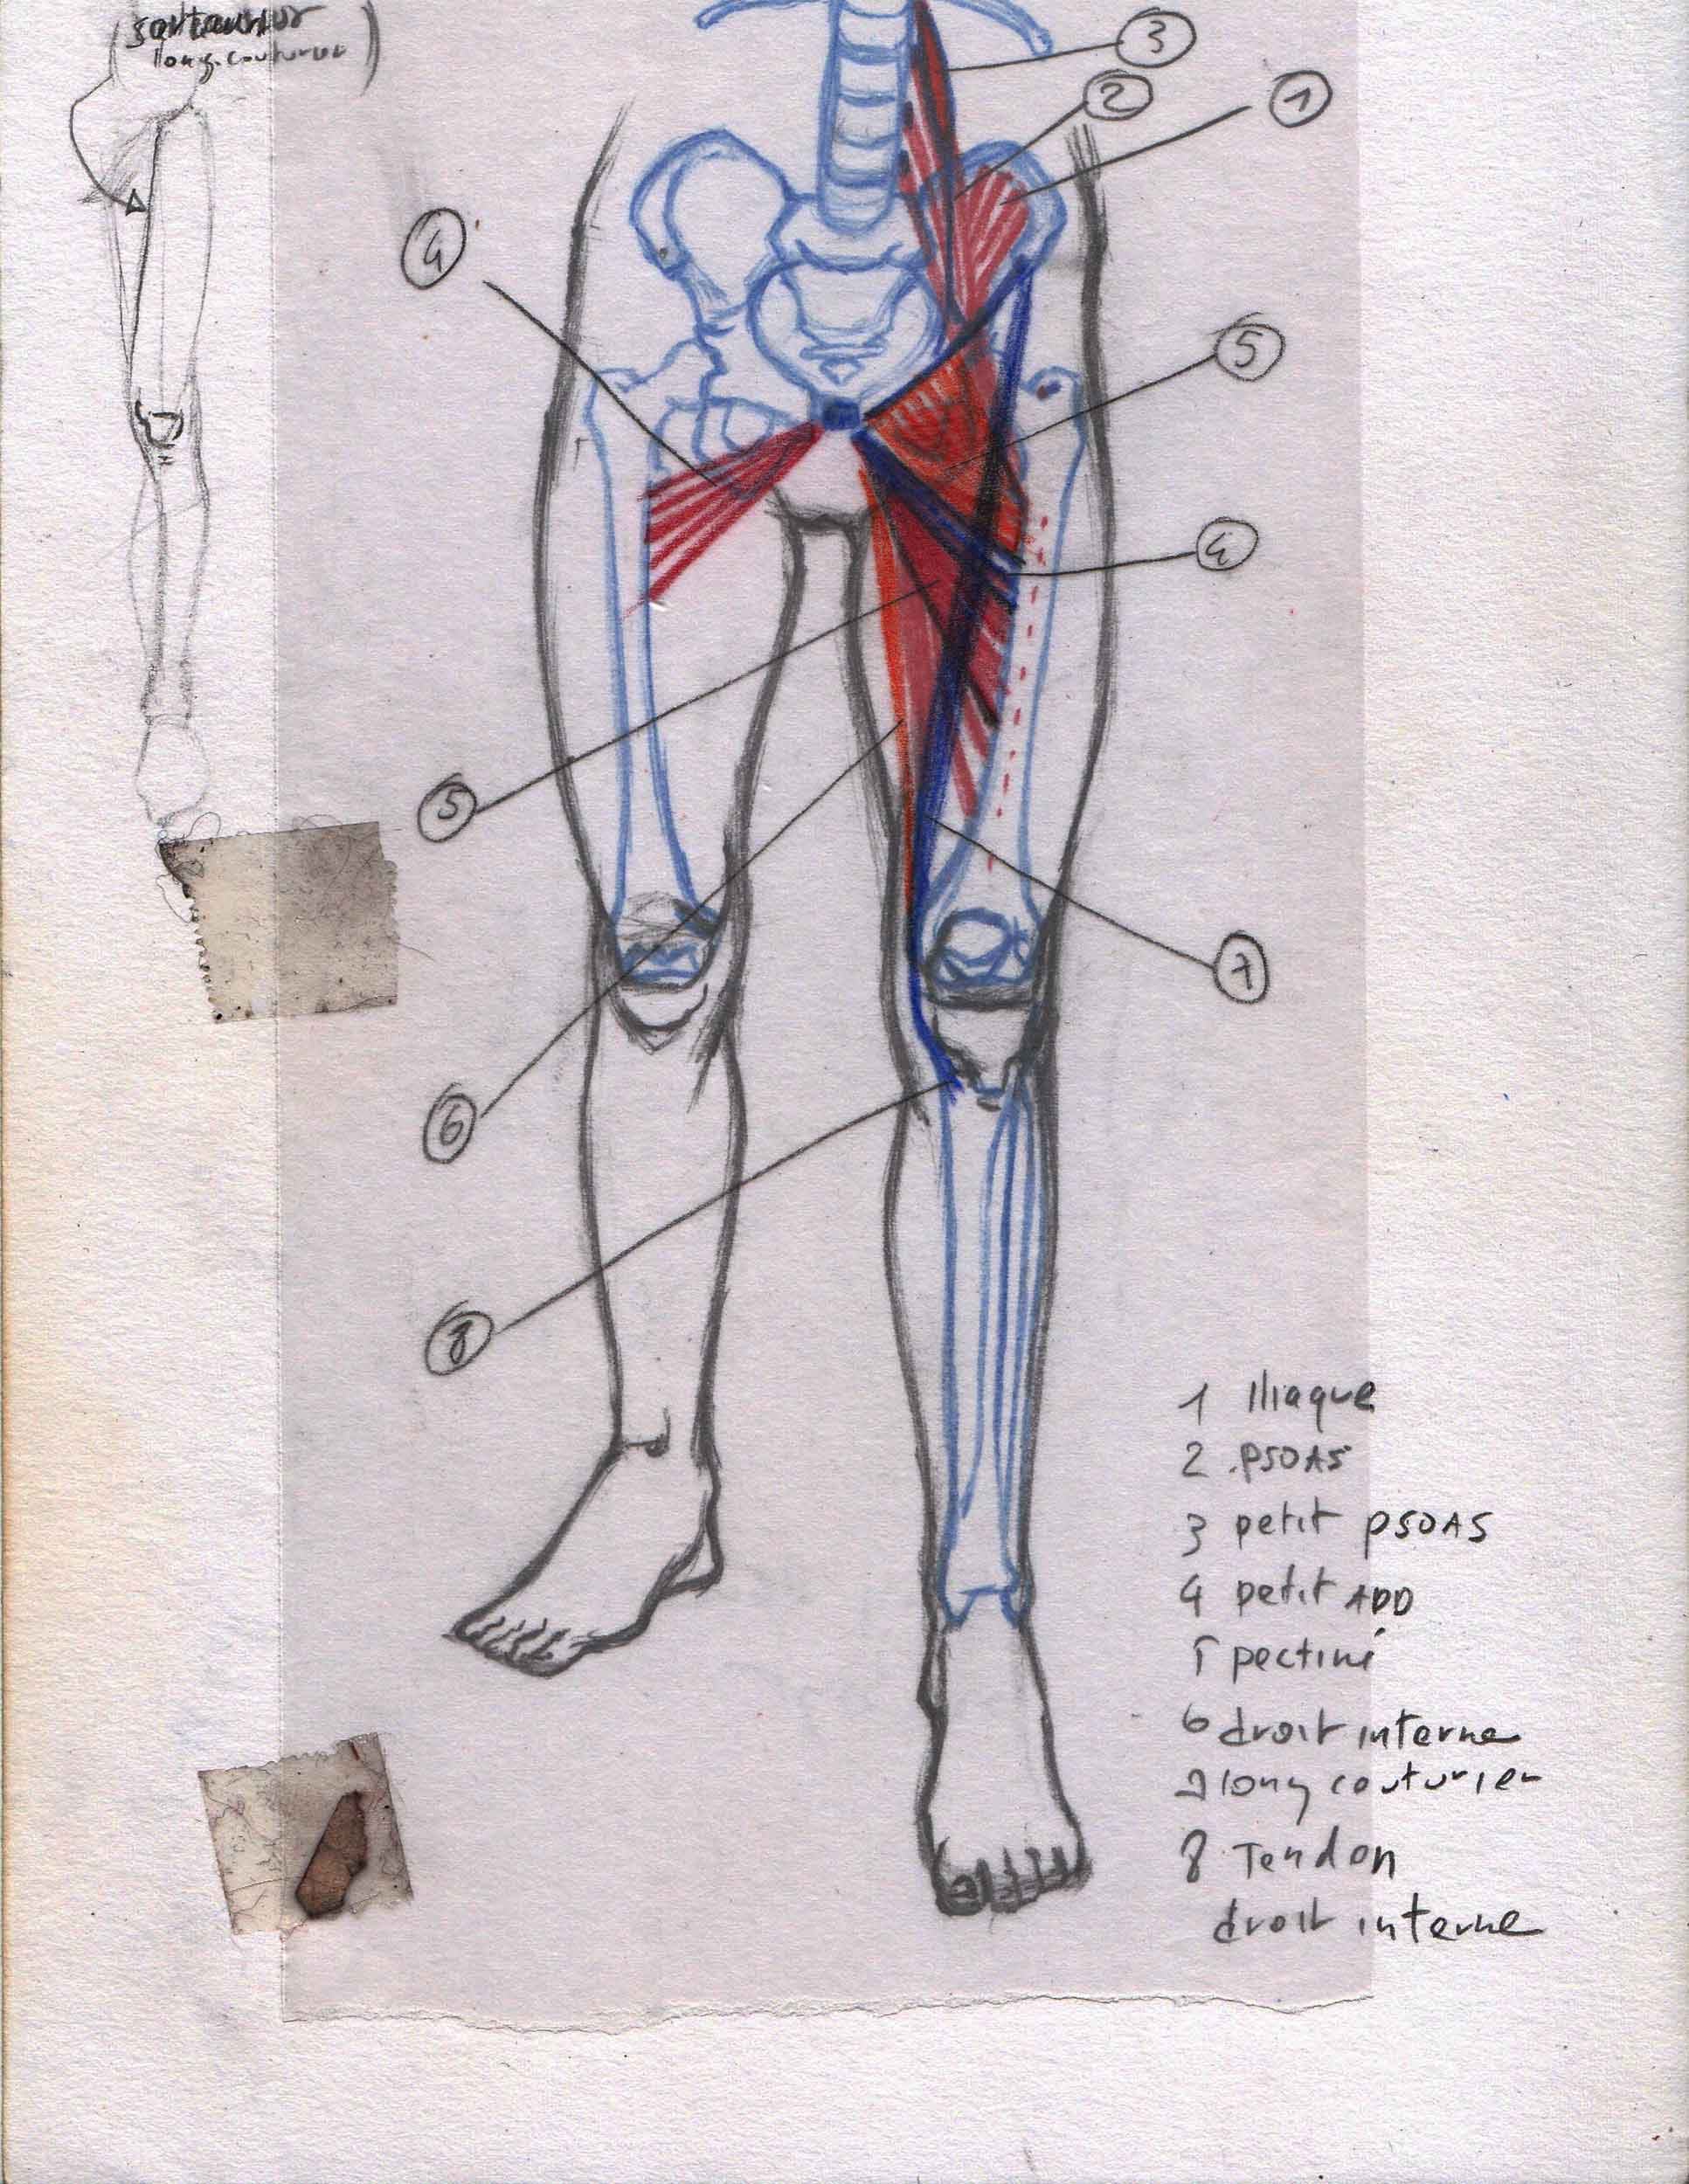 long.couturier
3
2
1
4
5
4
5
7
6
8
1 Iliaque
2 .PSOAS
3 petit PSOAS
4 petit ADD
5 pectiné
6 droit interne
7 long couturier
8 Tendon
droit interne